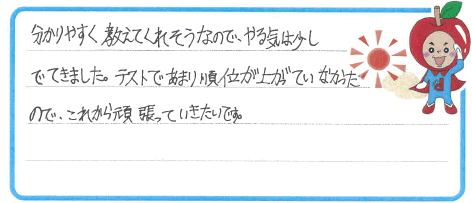 分かりやすく教えてくれそうなので、やる気は少し
でてきました。テストであまり順位が上がていなかった
ので、これから頑張っていきたいです。